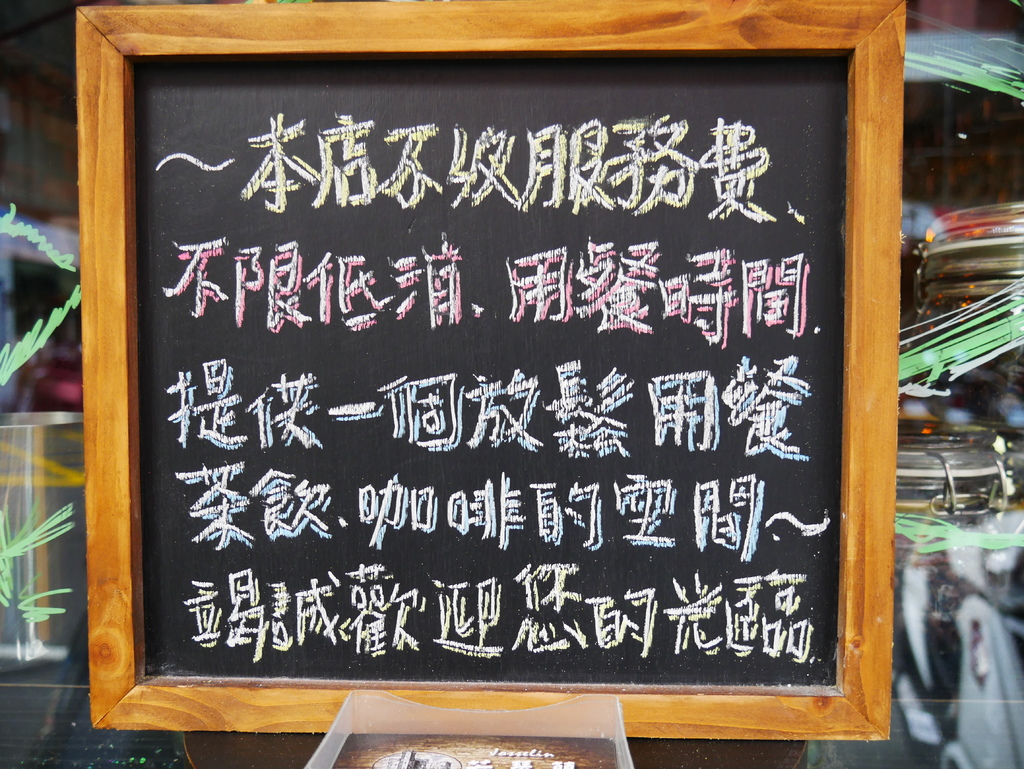 ～本店不收服務費、
不限低消、用餐時間.
提供一個放鬆用餐
茶飲、咖啡的空間～
竭誠歡迎您的光臨.
Josselin